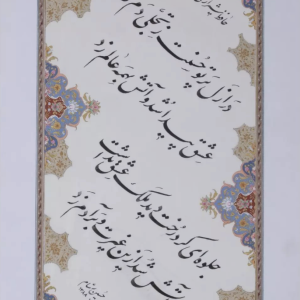 در ازل پرتو حسنت ز تجلی دم زد
عشق پیدا شد و آتش بهمه عالم زد
جلوه‌ای کرد رخت دید ملک عشق نداشت
عین آتش شد ازین غیرت و بر آدم زد